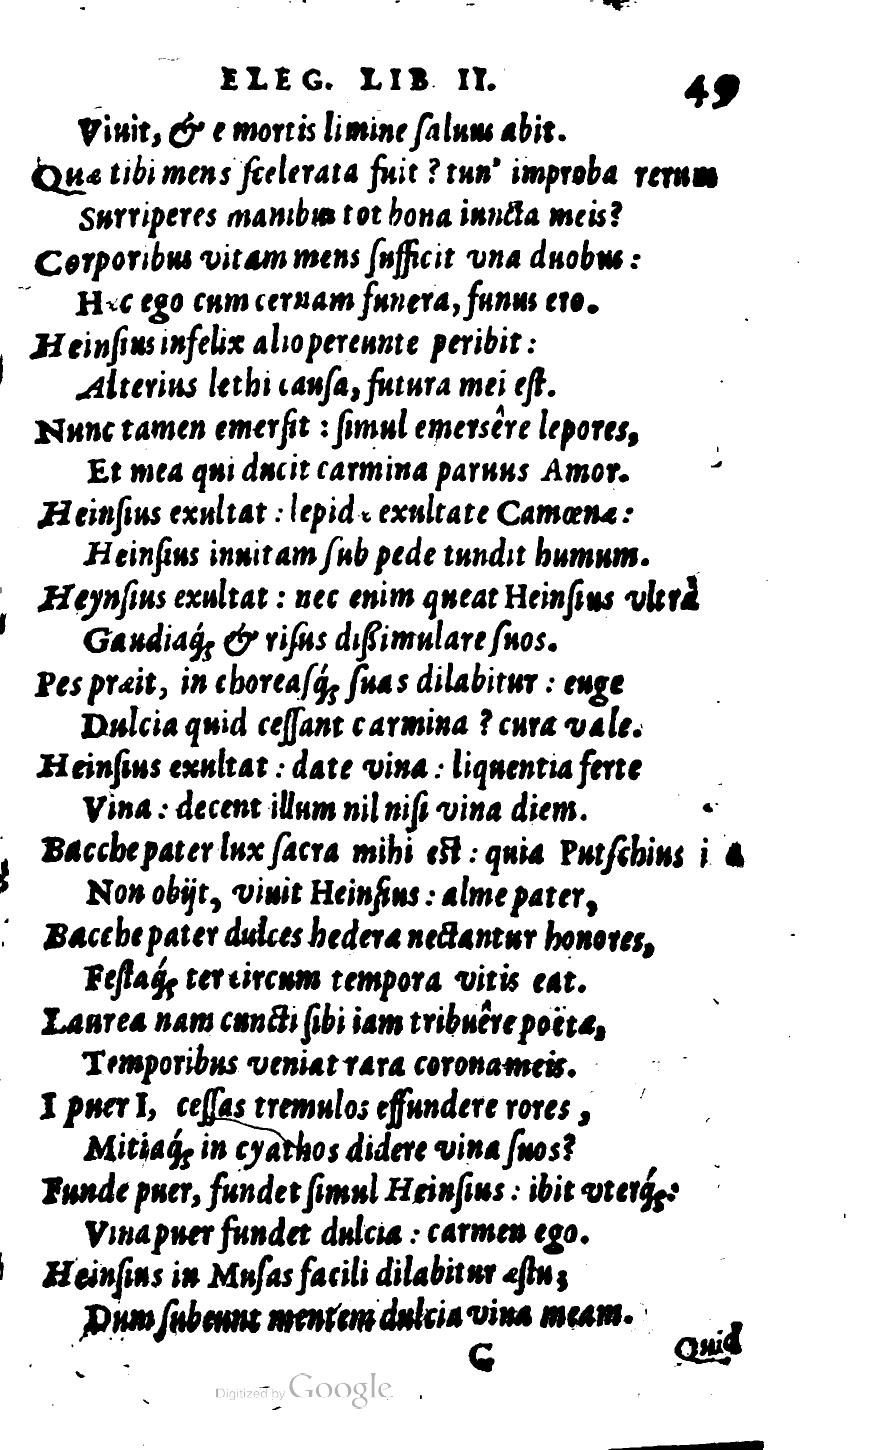 ELEG. LIB II. 49
Viuit, & e mortis limine ſaluus abit.
Quæ tibi mens ſcelerata fuit ? tun' improba rerum
Surriperes manibus tot bona iuncta meis?
Corporibus vitam mens ſufficit vna duobus :
Hæc ego cum cernam funera, funus ero.
Heinſius infelix alio pereunte peribit :
Alterius lethi cauſa, futura mei eſt.
Nunc tamen emerſit : ſimul emersêre lepores,
Et mea qui ducit carmina paruus Amor.
Heinſius exultat : lepidæ exultate Camœnæ :
Heinſius inuitam ſub pede tundit humum.
Heynſius exultat : nec enim queat Heinſius vltrà
Gaudiaq́; & riſus diſſimulare ſuos.
Pes præit, in choreaſq́; ſuas dilabitur : euge
Dulcia quid ceſſant carmina ? cura vale.
Heinſius exultat : date vina : liquentia ferte
Vina : decent illum nil niſi vina diem.
Bacche pater lux ſacra mihi eſt : quia Putſchius
Non obijt, viuit Heinſius : alme pater,
Bacche pater dulces hederæ nectantur honores,
Feſtaq́; ter circum tempora vitis eat.
Laurea nam cuncti ſibi iam tribuêre poëtæ,
Temporibus veniat rara corona meis.
I puer I, ceſſas tremulos effundere rores ,
Mitiaq́; in cyathos didere vina ſuos?
Funde puer, fundet ſimul Heinſius : ibit vterq́;:
Vina puer fundet dulcia : carmen ego.
Heinſius in Muſas facili dilabitur æſtu;
Dum ſubeunt mentem dulcia vina meam.
G Quid
Digitized by Google